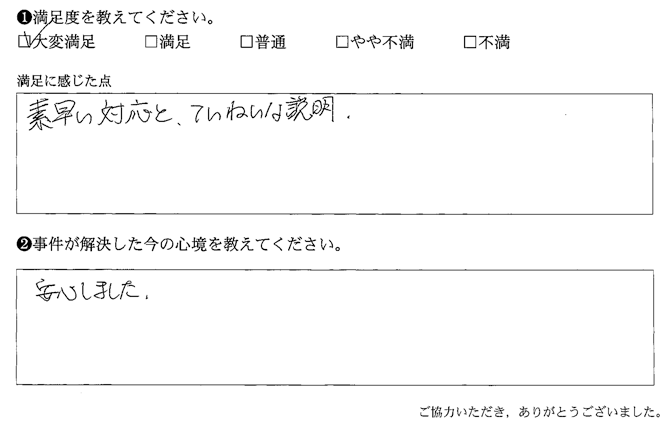 ❶満足度を教えてください。
☑大変満足 □満足 □普通 □やや不満 □不満
満足に感じた点
素早い対応と、ていねいな説明.
❷事件が解決した今の心境を教えてください。
安心しました.
ご協力いただき，ありがとうございました。